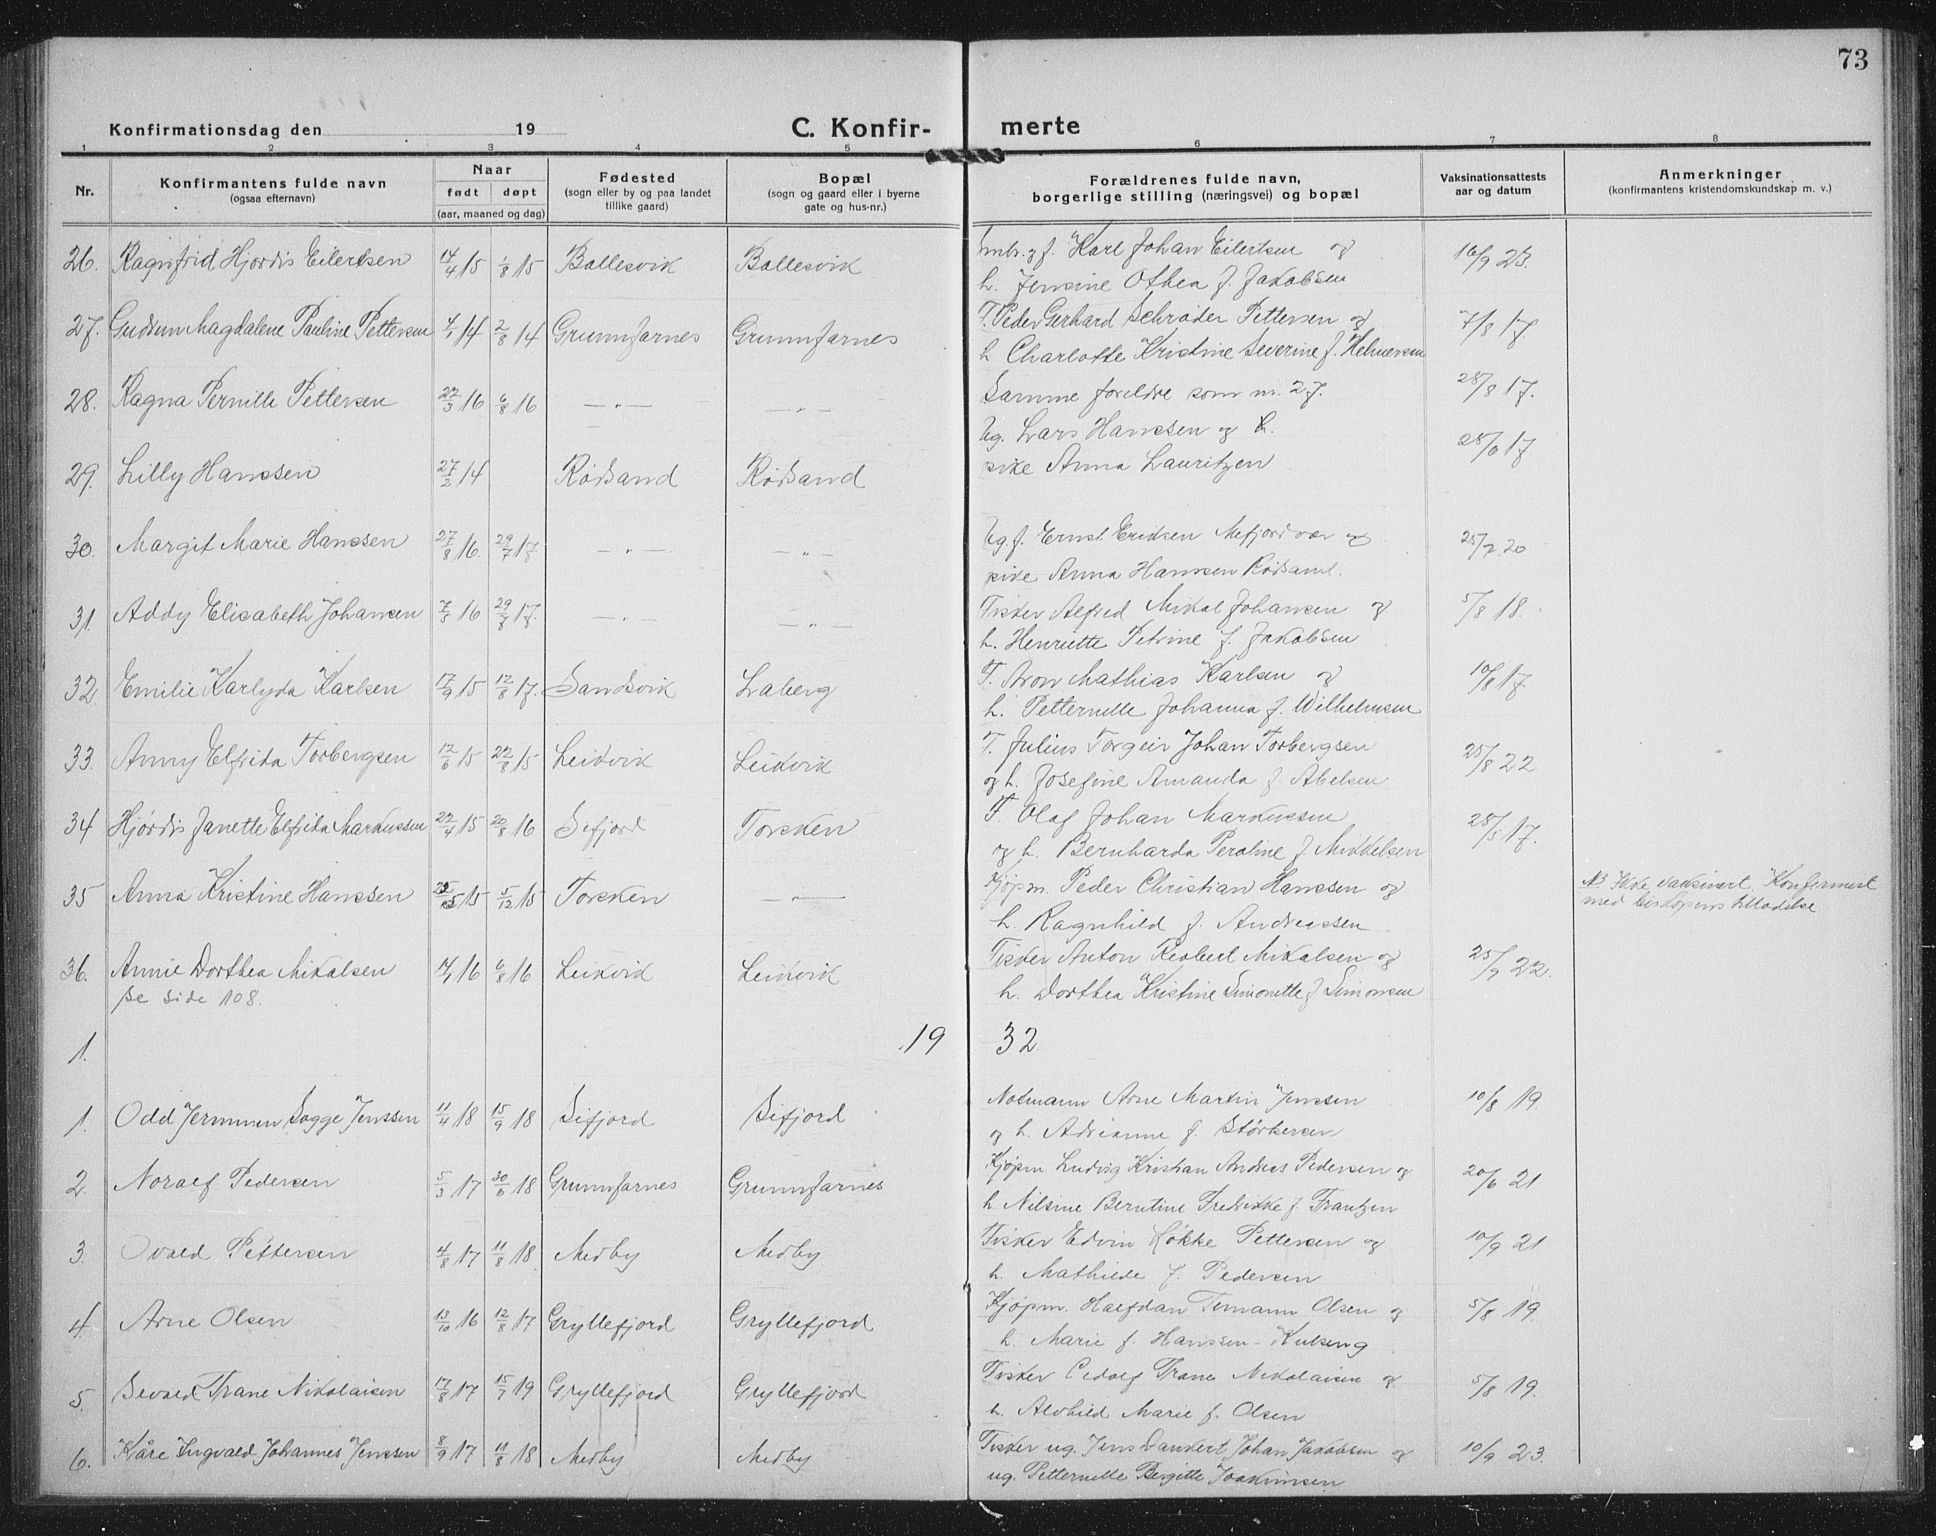 73
Konfirmationsdag den 19
C. Konfir- merte
1 2 3 4 5 6 7 8
Nr.
Konfirmantens fulde navn
(ogsaa efternavn)
Naar
født døpt
(aar, maaned og dag)
Fødested
(sogn eller by og paa landet
tillike gaard)
Bopæl
(sogn og gaard eller i byerne
gate og hus-nr.)
Forældrenes fulde navn,
borgerlige stilling (næringsvei) og bopæl
Vaksinationsattests
aar og datum
Anmerkninger
(konfirmantens kristendomskundskap m. v.)
26. Ragnfrid Hjordis Eilertsen 14/4 15 1/8 15 Ballesvik Ballesvik Smbr. g f. Karl Johan Eilertsen og 16/9 23.
h. Jensine Othea f. Jakobsen
27. Gudrun Magdalene Pauline Pettersen 4/1 14 2/8 14 Grunnfarnes Grunnfarnes F. Peder Gerhard Schrøder Pettersen og 7/8 17.
h. Charlotte Kristine Severine f. Helmersen
28. Ragna Pernille Pettersen 22/3 16 6/8 16 — " — — " — Samme foreldre som nr. 27. 28/8 17.
29. Lilly Hanssen 27/2 14 Rødsand Rødsand Ug. Lars Hanssen og 
pike Anna Lauritzen
30. Margit Marie Hanssen 27/8 16. 29/7 17. — " — — " — Ug. f. Ernst Eriksen Mefjordvær og 25/7 20
pike Anna Hanssen Rødsand.
31. Addy Elisabeth Johansen 7/5 16 29/8 17. — " — — " — Fisker Alfred Mikal Johansen og 5/8 18.
h. Henriette Petrine f. Jakobsen
32. Emilie Karlyda Karlsen 17/9 15 12/8 17. Sandsvik Laberg F. Aron Mathias Karlsen og 10/8 17
h. Petternelle Johanna f. Wilhelmsen
33. Anny Elfrida Torbergsen 12/6 15 22/8 15 Leikvik Leikvik F. Julius Torgeir Johan Torbergsen 25/8 22
og h. Josefine Amanda f. Abelsen
34 Hjørdis Janette Elfrida Markussen 22/4 15 20/8 16 Sifjord Torsken F. Olaf Johan Markussen 28/5 17.
og h. Bernharda Peroline f. Mikkelsen
35 Anna Kristine Hanssen 15 5/12 15 Torsken — " — Kjøpm. Peder Christian Hanssen og NB Ikke vaksinert. Konfirmert
h. Ragnhild f. Andreassen med biskopens tillatelse
36. Annie Dorthea Mikalsen 16 6/8 16 Leikvik Leikvik Fisker Anton Robert Mikalsen og 25/9 22.
se side 108. h. Dorthea Kristine Simonette f Simonsen
1. 19 32
1. Odd Jermunn Sogge Jenssen 11/4 18 15/9 18 Sifjord Sifjord Notmann Arne Martin Jenssen 10/8 19.
og h. Adrianne f. Størkersen
2. Noralf Pedersen 5/3 17 30/6 18 Grunnfarnes Grunnfarnes Kjøpm Ludvig Kristian Andreas Pedersen og 20/6 21
h. Nilsine Berntine Fredrikke f. Frantzen
3. Ovald Pettersen 4/8 17 11/8 18 Medby Medby Fisker Edvin Løkke Pettersen og 10/9 21
h. Mathilde f. Pedersen
4. Arne Olsen 13/10 16 12/8 17 Gryllefjord Gryllefjord Kjøpm. Halfdan Temann Olsen og 5/8 19.
h. Marie f. Hanssen-Kulseng
5. Sevald Trane Nikolaisen 17/8 17 15/7 19 Gryllefjord Gryllefjord Fisker Edolf Trane Nikolaisen og 5/8 19.
h. Alvhild Marie f. Olsen
6. Kåre Ingvald Johannes Jenssen 8/9 17 11/8 18 Medby Medby Fisker ug. Jens Dankert Johan Jakobsen og 10/9 23.
ug. Petternelle Bergitte Joakimsen